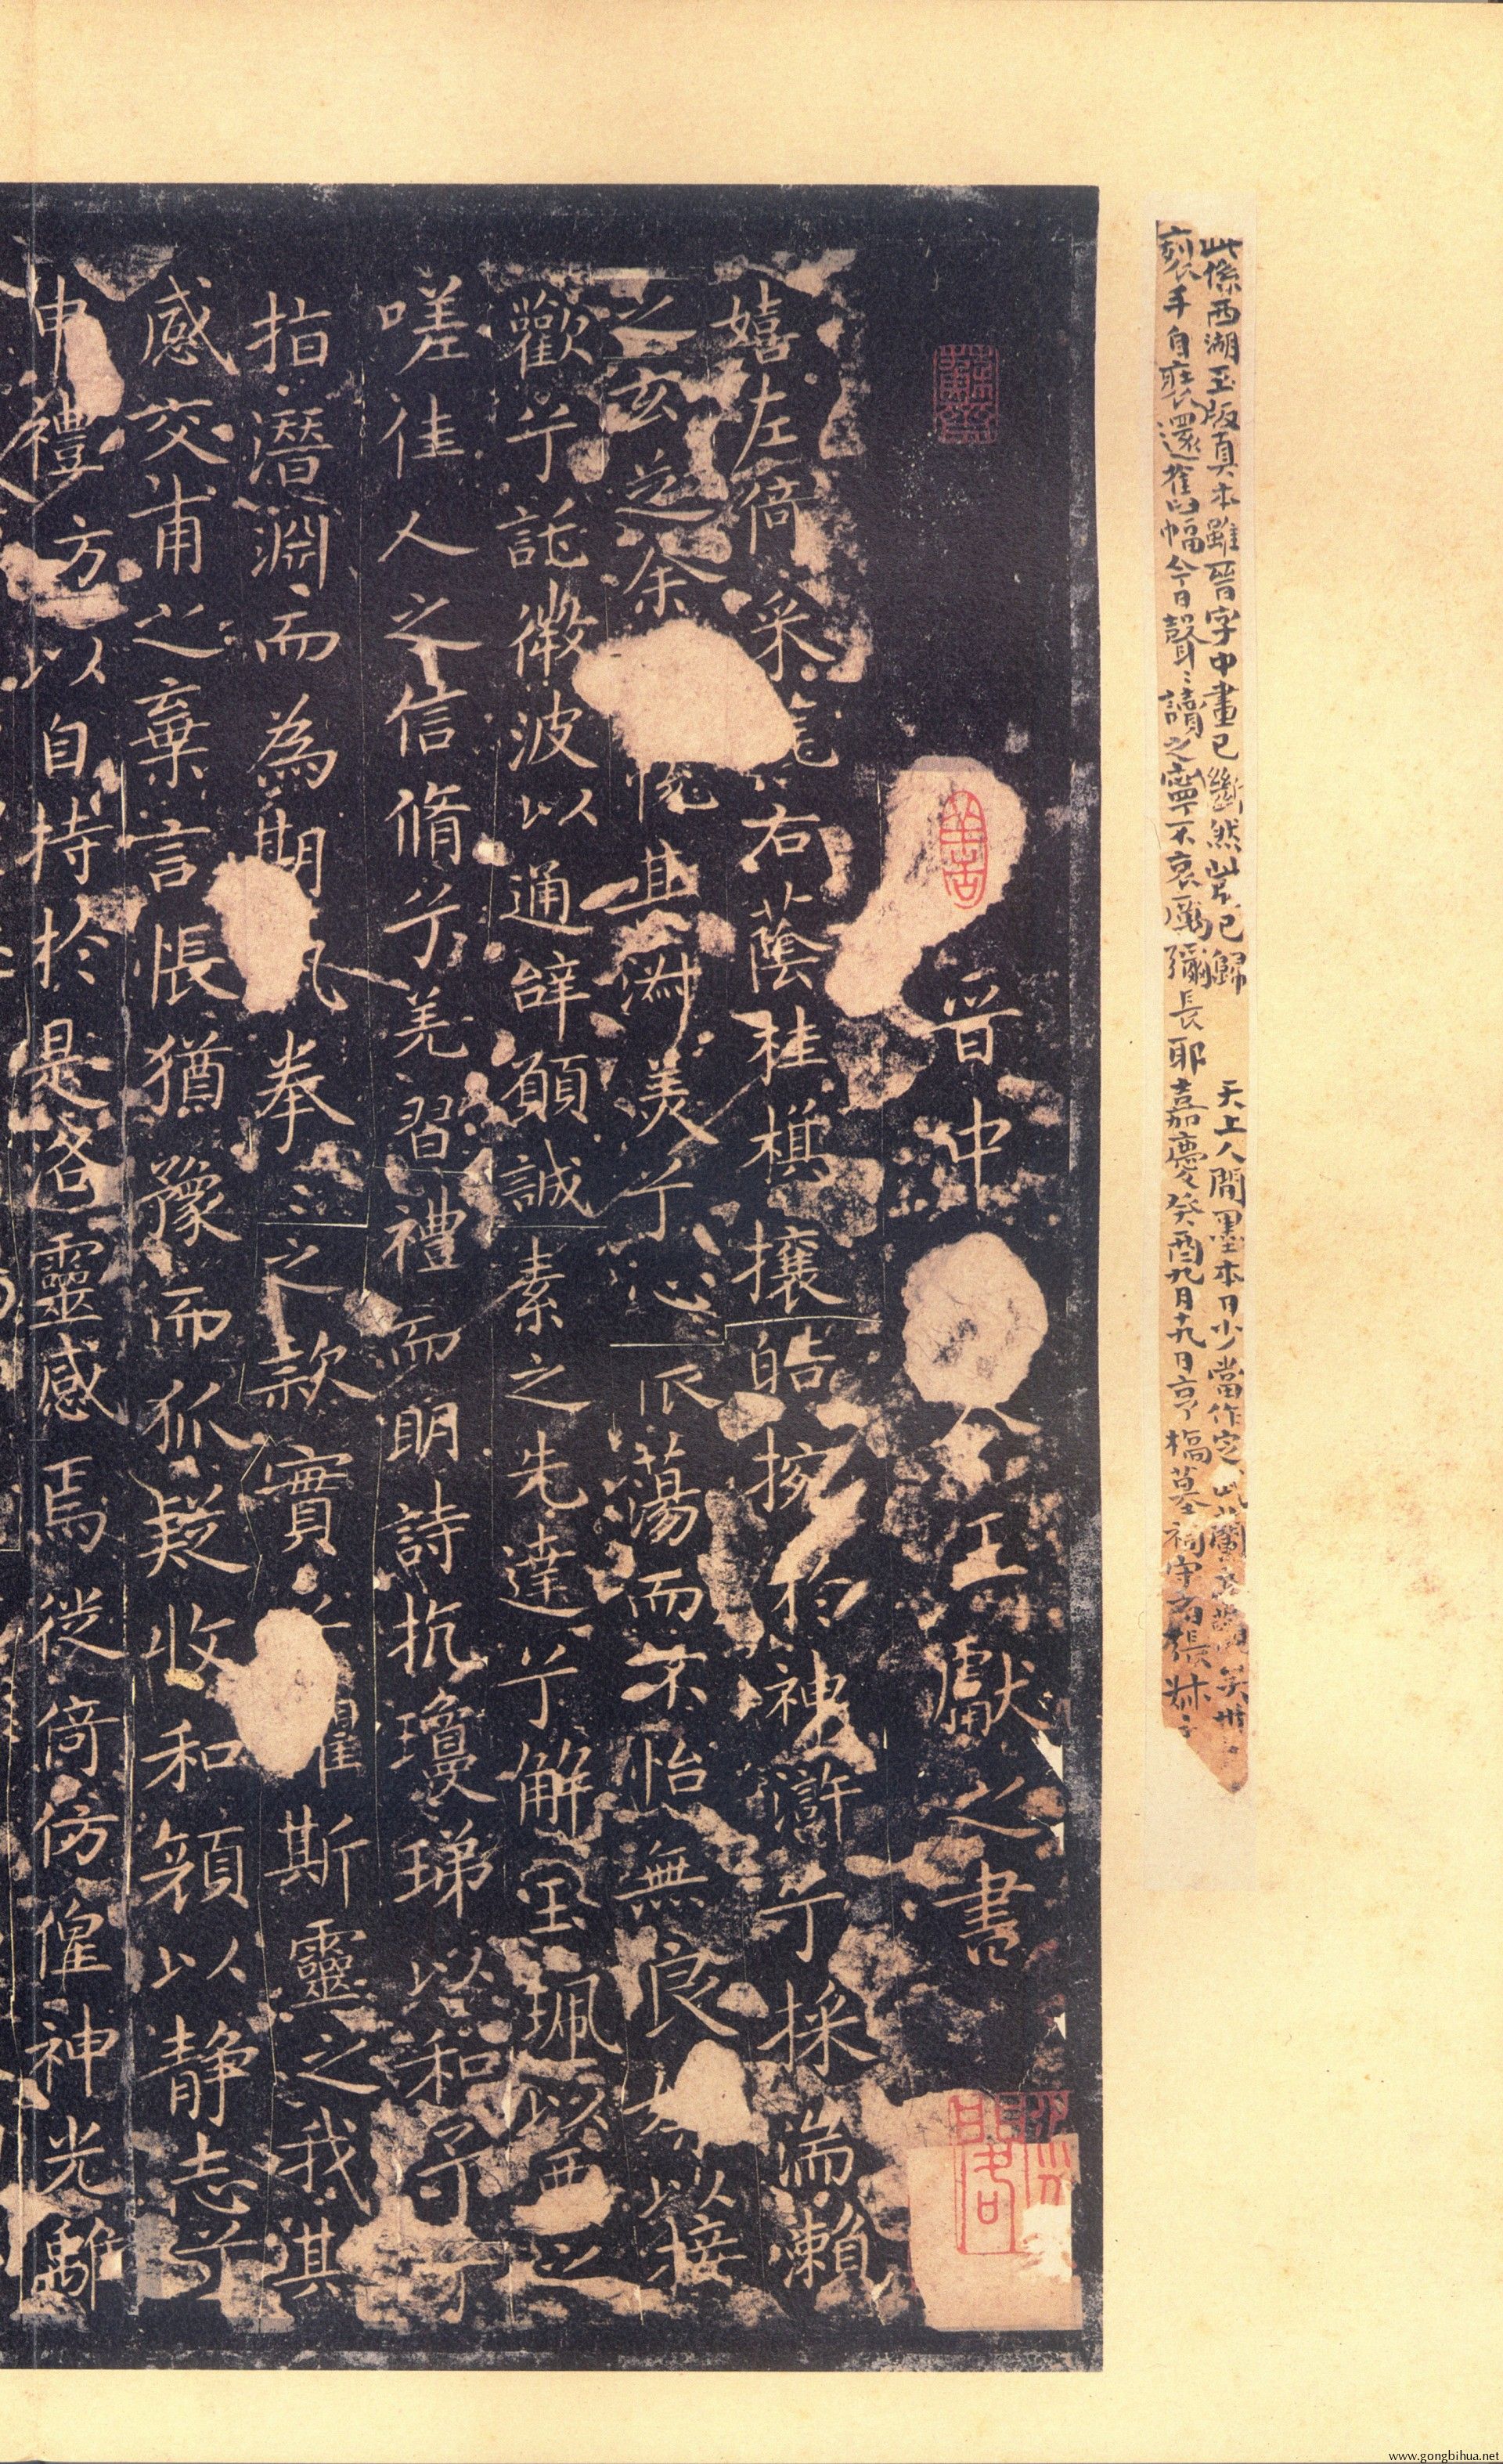 此係西湖玉版真本雖晉字中畫已斷然此已歸 天上人間墨本日少當作定
裂手自裝還舊幅今日聲〻讀之寧不哀厲彌長耶嘉慶癸酉九月十九日亨橋墓祠守
晉中 令王獻之書
嬉左倚采旄右蔭桂棋攘皓捥於神滸兮採湍瀨
之玄芝余 恱其淑美兮心 而不怡無良 以接
歡兮託微波以通辞願誠素之先達兮解玉珮以要之
嗟佳人之信脩兮羌習禮而明詩抗瓊珶以和予兮
指潛淵而為期 執拳〻之款實 懼斯靈之我欺
感交甫之棄言悵猶豫而狐疑收和顏以静志兮
申禮方以自持於是洛靈感焉徙倚仿偟神光離
www.gongbihua.net